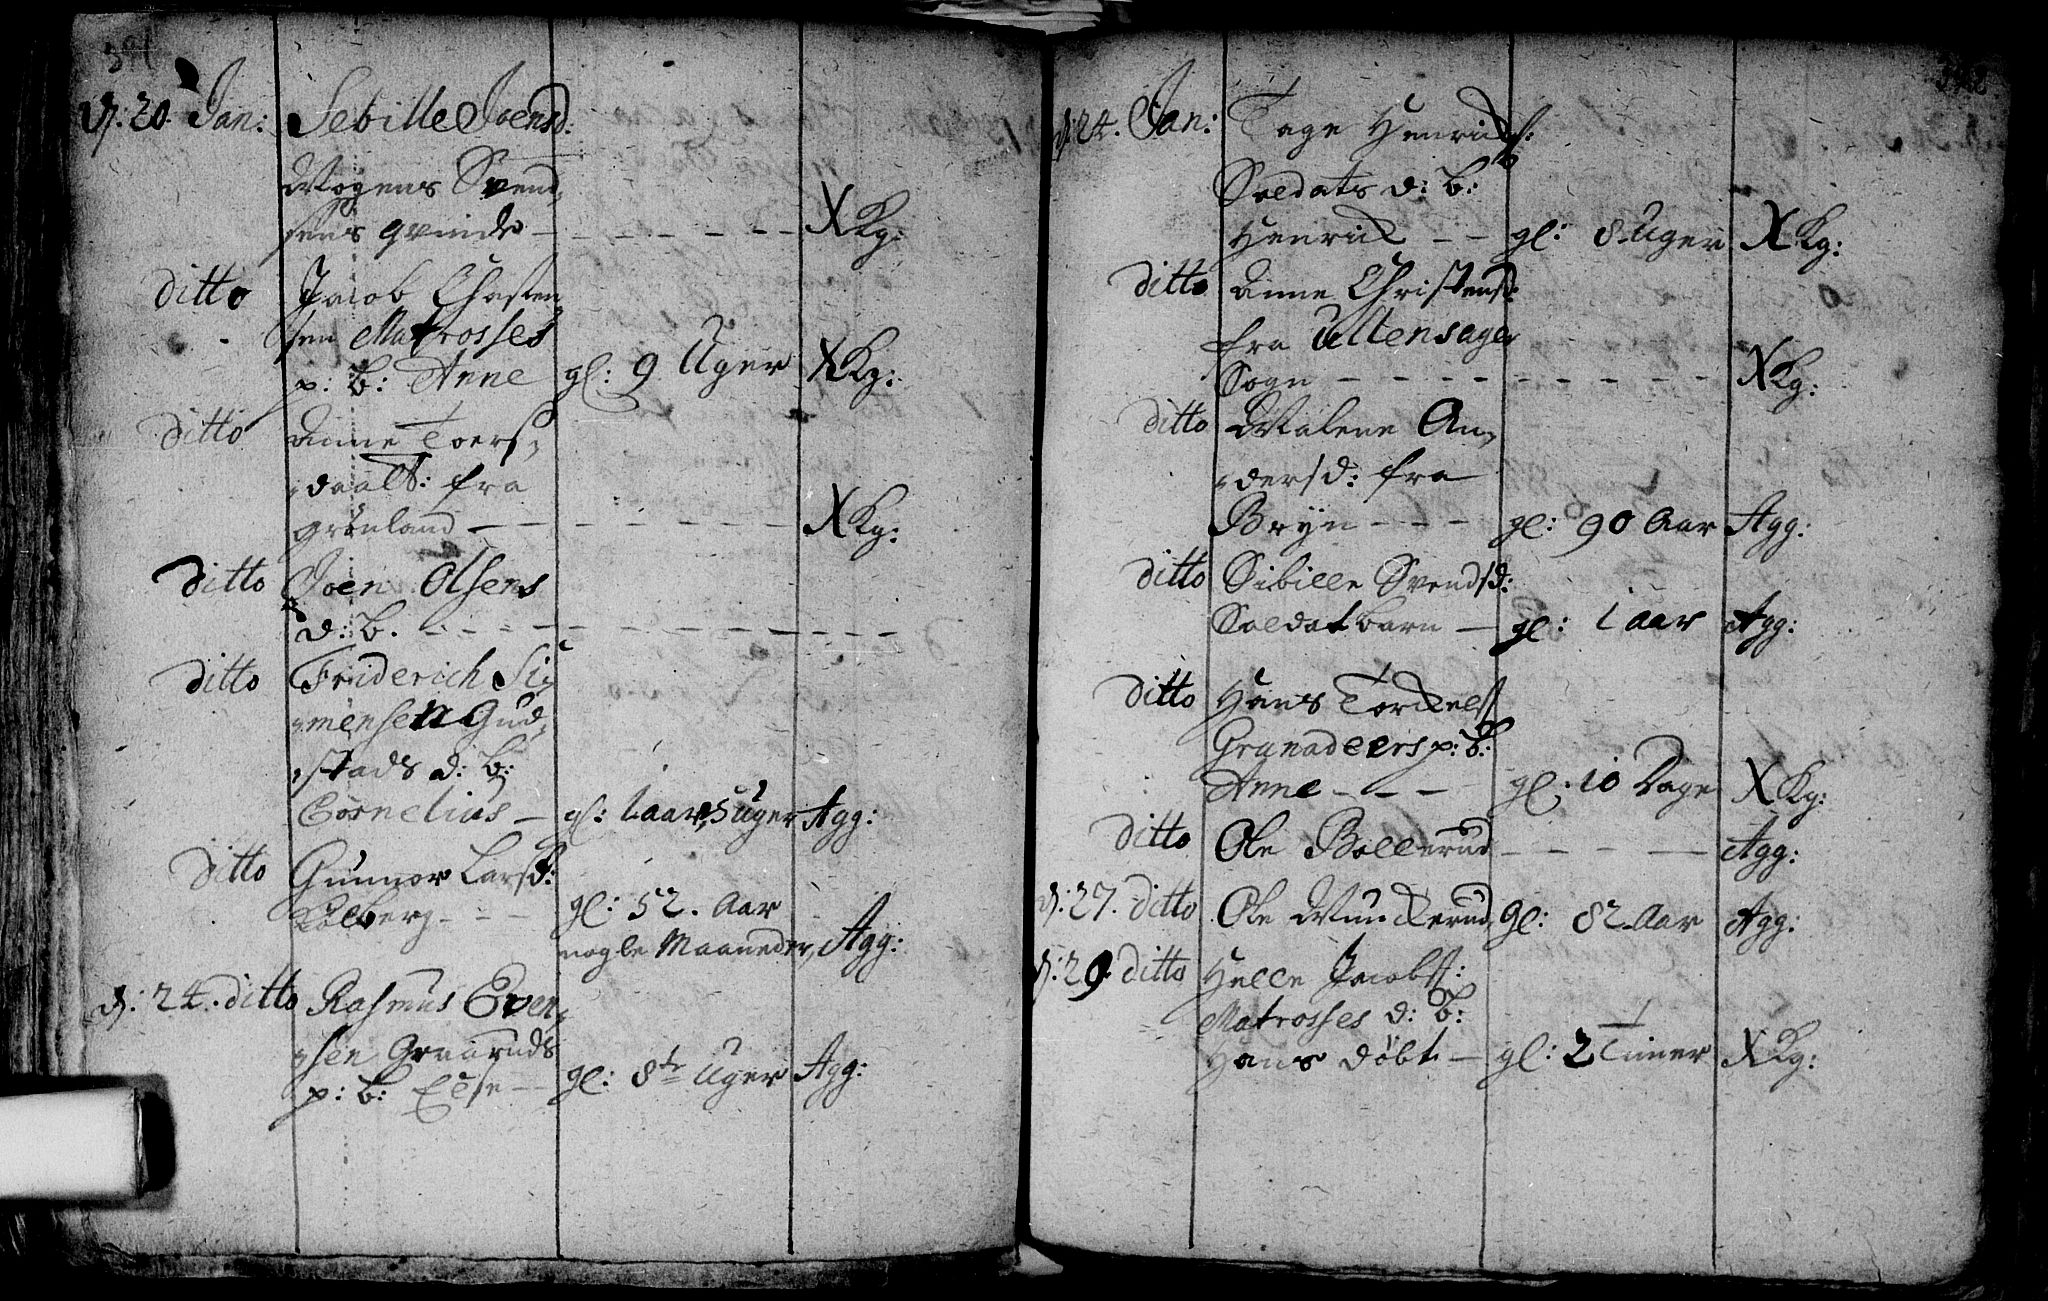 d: 20. Jan: Sebille Joensd:
Mogens Svend,
sens qvinde - - - - - - X Kg:
ditto Jacob Chasten,
sen Matrosses
p: b: Anne gl: 9 Uger X Kg:
ditto Anne Toers,
daatt: fra
Grönland - - - - - - X Kg:
ditto Joen Olsens
d: b. - - - - - - - -
ditto Friderich Si,
mensen Gud,
stads d: b:
Cornelius - gl: 1 aar, 5 Uger Agg:
ditto Gunnor Larsd:
Kolberg - - - gl: 52. Aar
nogle Maaneder, Agg:
d: 24. ditto Rasmus Even,
sen
p: b: Else - - gl: 8te Uger Agg:
d: 24. Jan: Tage Henrichs:
Soldats d: b:
Henrich - - gl: 8 Uger X Kg:
ditto Anne Christensd:
fra Ullensager
Sogn - - - - - - - - X Kg:
ditto Malene An,
dersd: fra
Bryn - - - - gl: 90 Aar Agg:
ditto Sibille Svendsd:
Soldat barn - gl: 1 aar Agg:
ditto Hans Torckels:
Granadeers p: b:
Anne - - - gl. 10 Dage X Kg:
ditto Ole Bollerud - - - - Agg:
d: 27. ditto Ole Munckerud, gl: 82 Aar Agg:
d: 29. ditto Helle Jacobs:
Matrosses d: b:
Hans döbt - gl: 2 Timer X Kg: